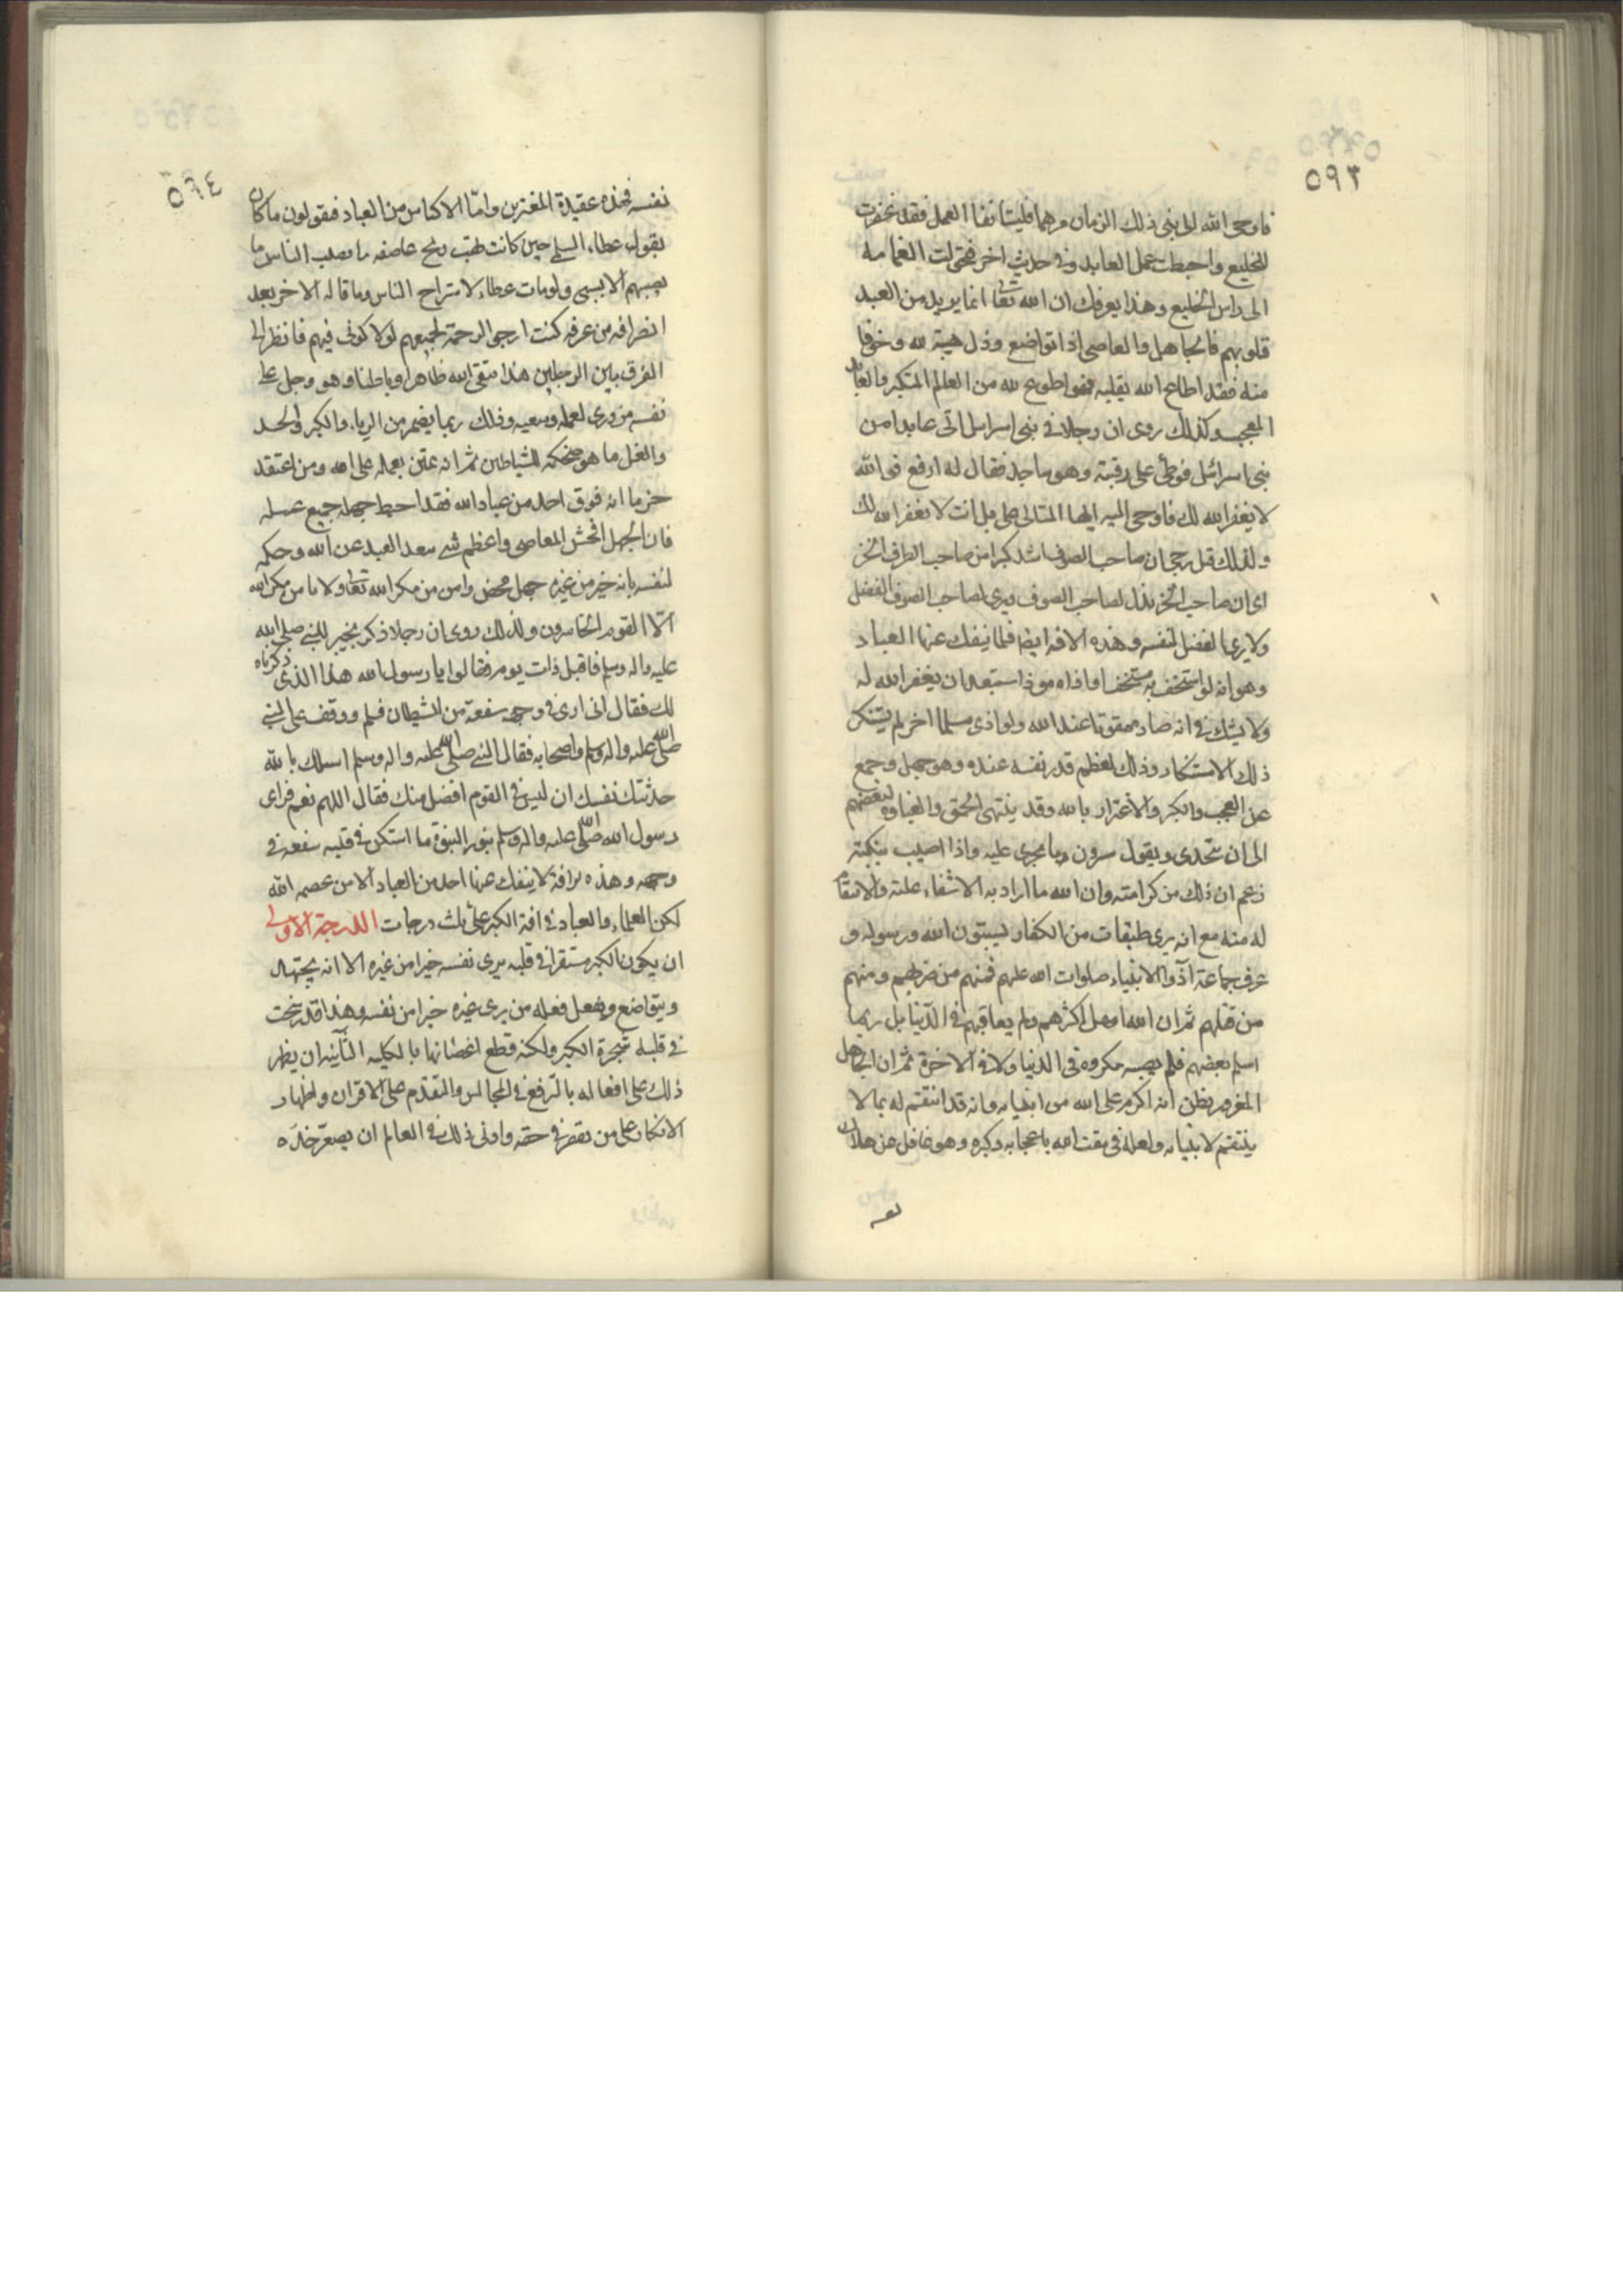 ٥٩٣
فاوحى الله الى نبى ذلك الزمان مرهما فليستانفا العمل فقد غفرت
للخليع واحبطت عمل العابد وفى حديث اخر فتحولت الغمامة
الى راس الخليع وهذا يعرفك ان الله تعا انما يريد من العبيد
قلوبهم فالجاهل والعاصى اذا تواضع وذل هيبة لله وخوفا
منه فقد اطاع الله بقلبه فهو اطوع لله من العالم المتكبر والعابد
المعجب وكذلك روى ان رجلا فى بنى اسرائيل اتى عابدا من
بنى اسرائيل فوطئ على رقبته وهو ساجد فقال له ارفع فوالله
لا يغفر الله لك فاوحى اليه ايها المتالى على بل انت لا يغفر الله لك
ولذلك قيل رجحان صاحب الصوف اشد كبرا من صاحب المطرف الخز
اى ان صاحب الخز يذل لصاحب الصوف ويرى لصاحب الصوف الفضل
ولا يرى الفضل لنفسه وهذه الافة ايضا قلما ينفك عنها العباد
وهو انه لو استخف به مستخف او اذاه موذ استبعد ان يغفر الله له
ولا يشك فى انه صار ممقوتا عند الله ولو اذى مسلما اخر لم يستنكر
ذلك الاستنكار وذلك لعظم قدر نفسه عنده وهو جهل وجمع
عن العجب والكبر والاغترار بالله وقد ينتهى الحمق والغباوة لبعضهم
الى ان يتحدى ويقول سرون ما يجرى عليه واذا اصيب بنكبة
زعم ان ذلك من كرامته وان الله ما اراد به الا شفاء علته والانتقام
له منه مع انه يرى طبقات من الكفار يسبون الله ورسوله و
عرف جماعة اذوا الانبياء صلوات الله عليهم فمنهم من ضربهم ومنهم
من قتلهم ثم ان الله امهل اكثرهم ولم يعاقبهم فى الدنيا بل ربما
اسلم بعضهم فلم يصبه مكروه فى الدنيا ولا فى الاخرة ثم ان الجاهل
المغرور يظن انه اكرم على الله من انبيائه وانه قد انتقم له بما لا
ينتقم لانبيائه ولعله فى مقت الله باعجابه وكبره وهو غافل عن هلاك
نفسه
٥٩٤
نفسه فهذه عقيدة المغترين واما الاكياس من العباد فيقولون ما كان
يقول عطاء السلمى حين كانت تهب ريح عاصفه ما يصيب الناس ما
يصيبهم الا بسببى ولو مات عطاء لاستراح الناس وما قاله الاخر بعد
انصرافه من عرفه كنت ارجو الرحمة لجميعهم لولا كونى فيهم فانظر الى
الفرق بين الرجلين هذا متقى الله ظاهرا وباطنا وهو وجل على
نفسه مزدرى لعمله وسعيه وذلك ربما يضمر من الرياء والكبر والحسد
والغل ما هو ضحكة للشياطين ثم انه يمتن بعمله على الله ومن اعتقد
جزما انه فوق احد من عباد الله فقد احبط بجهله جميع عمله
فان الجهل افحش المعاصى واعظم شى يبعد العبد عن الله وحكمه
لنفسه بانه خير من غيره جهل محض وامن من مكر الله تعا ولا يامن مكر الله
الا القوم الخاسرون ولذلك روى ان رجلا ذكر بخير للنبى صلى الله
عليه واله وسلم فاقبل ذات يوم فقالوا يا رسول الله هذا الذى ذكرناه
لك فقال انى ارى فى وجهه سفعة من الشيطان فسلم ووقف على النبى
صلى الله عليه واله وسلم واصحابه فقال النبى صلى الله عليه واله وسلم اسالك بالله
حدثتك نفسك ان ليس فى القوم افضل منك فقال اللهم نعم فراى
رسول الله صلى الله عليه واله وسلم بنور النبوة ما استكن فى قلبه سفعة فى
وجهه وهذه افة لا ينفك عنها احد من العباد الا من عصمه الله
لكن العلماء والعباد فى افة الكبر على ثلث درجات الدرجة الاولى
ان يكون الكبر مستقرا فى قلبه يرى نفسه خيرا من غيره الا انه يجتهد
ويتواضع ويفعل فعله من يرى غيره خيرا من نفسه وهذا قد رسخت
فى قلبه شجرة الكبر ولكنه قطع اغصانها بالكليه الثانيه ان يظهر
ذلك على افعاله بالترفع فى المجالس والتقدم على الاقران واظهار
الانكار على من يقصر فى حقه وادنى ذلك فى العالم ان يصعر خده